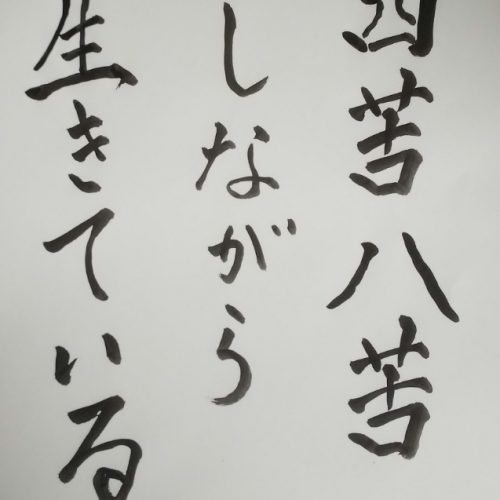 四苦八苦
しながら
生きている